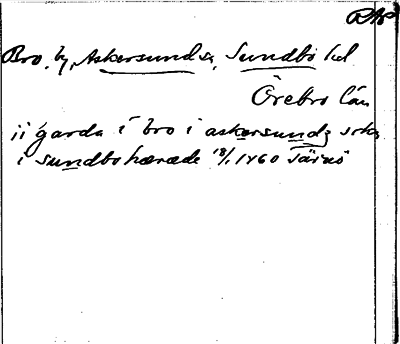 RAP
Bro, by, Askersunds, Sundbo hd
Örebro län
ii garda i bro i askersundz sokn
i sundbo hæræde 18/1 1460 Särnö